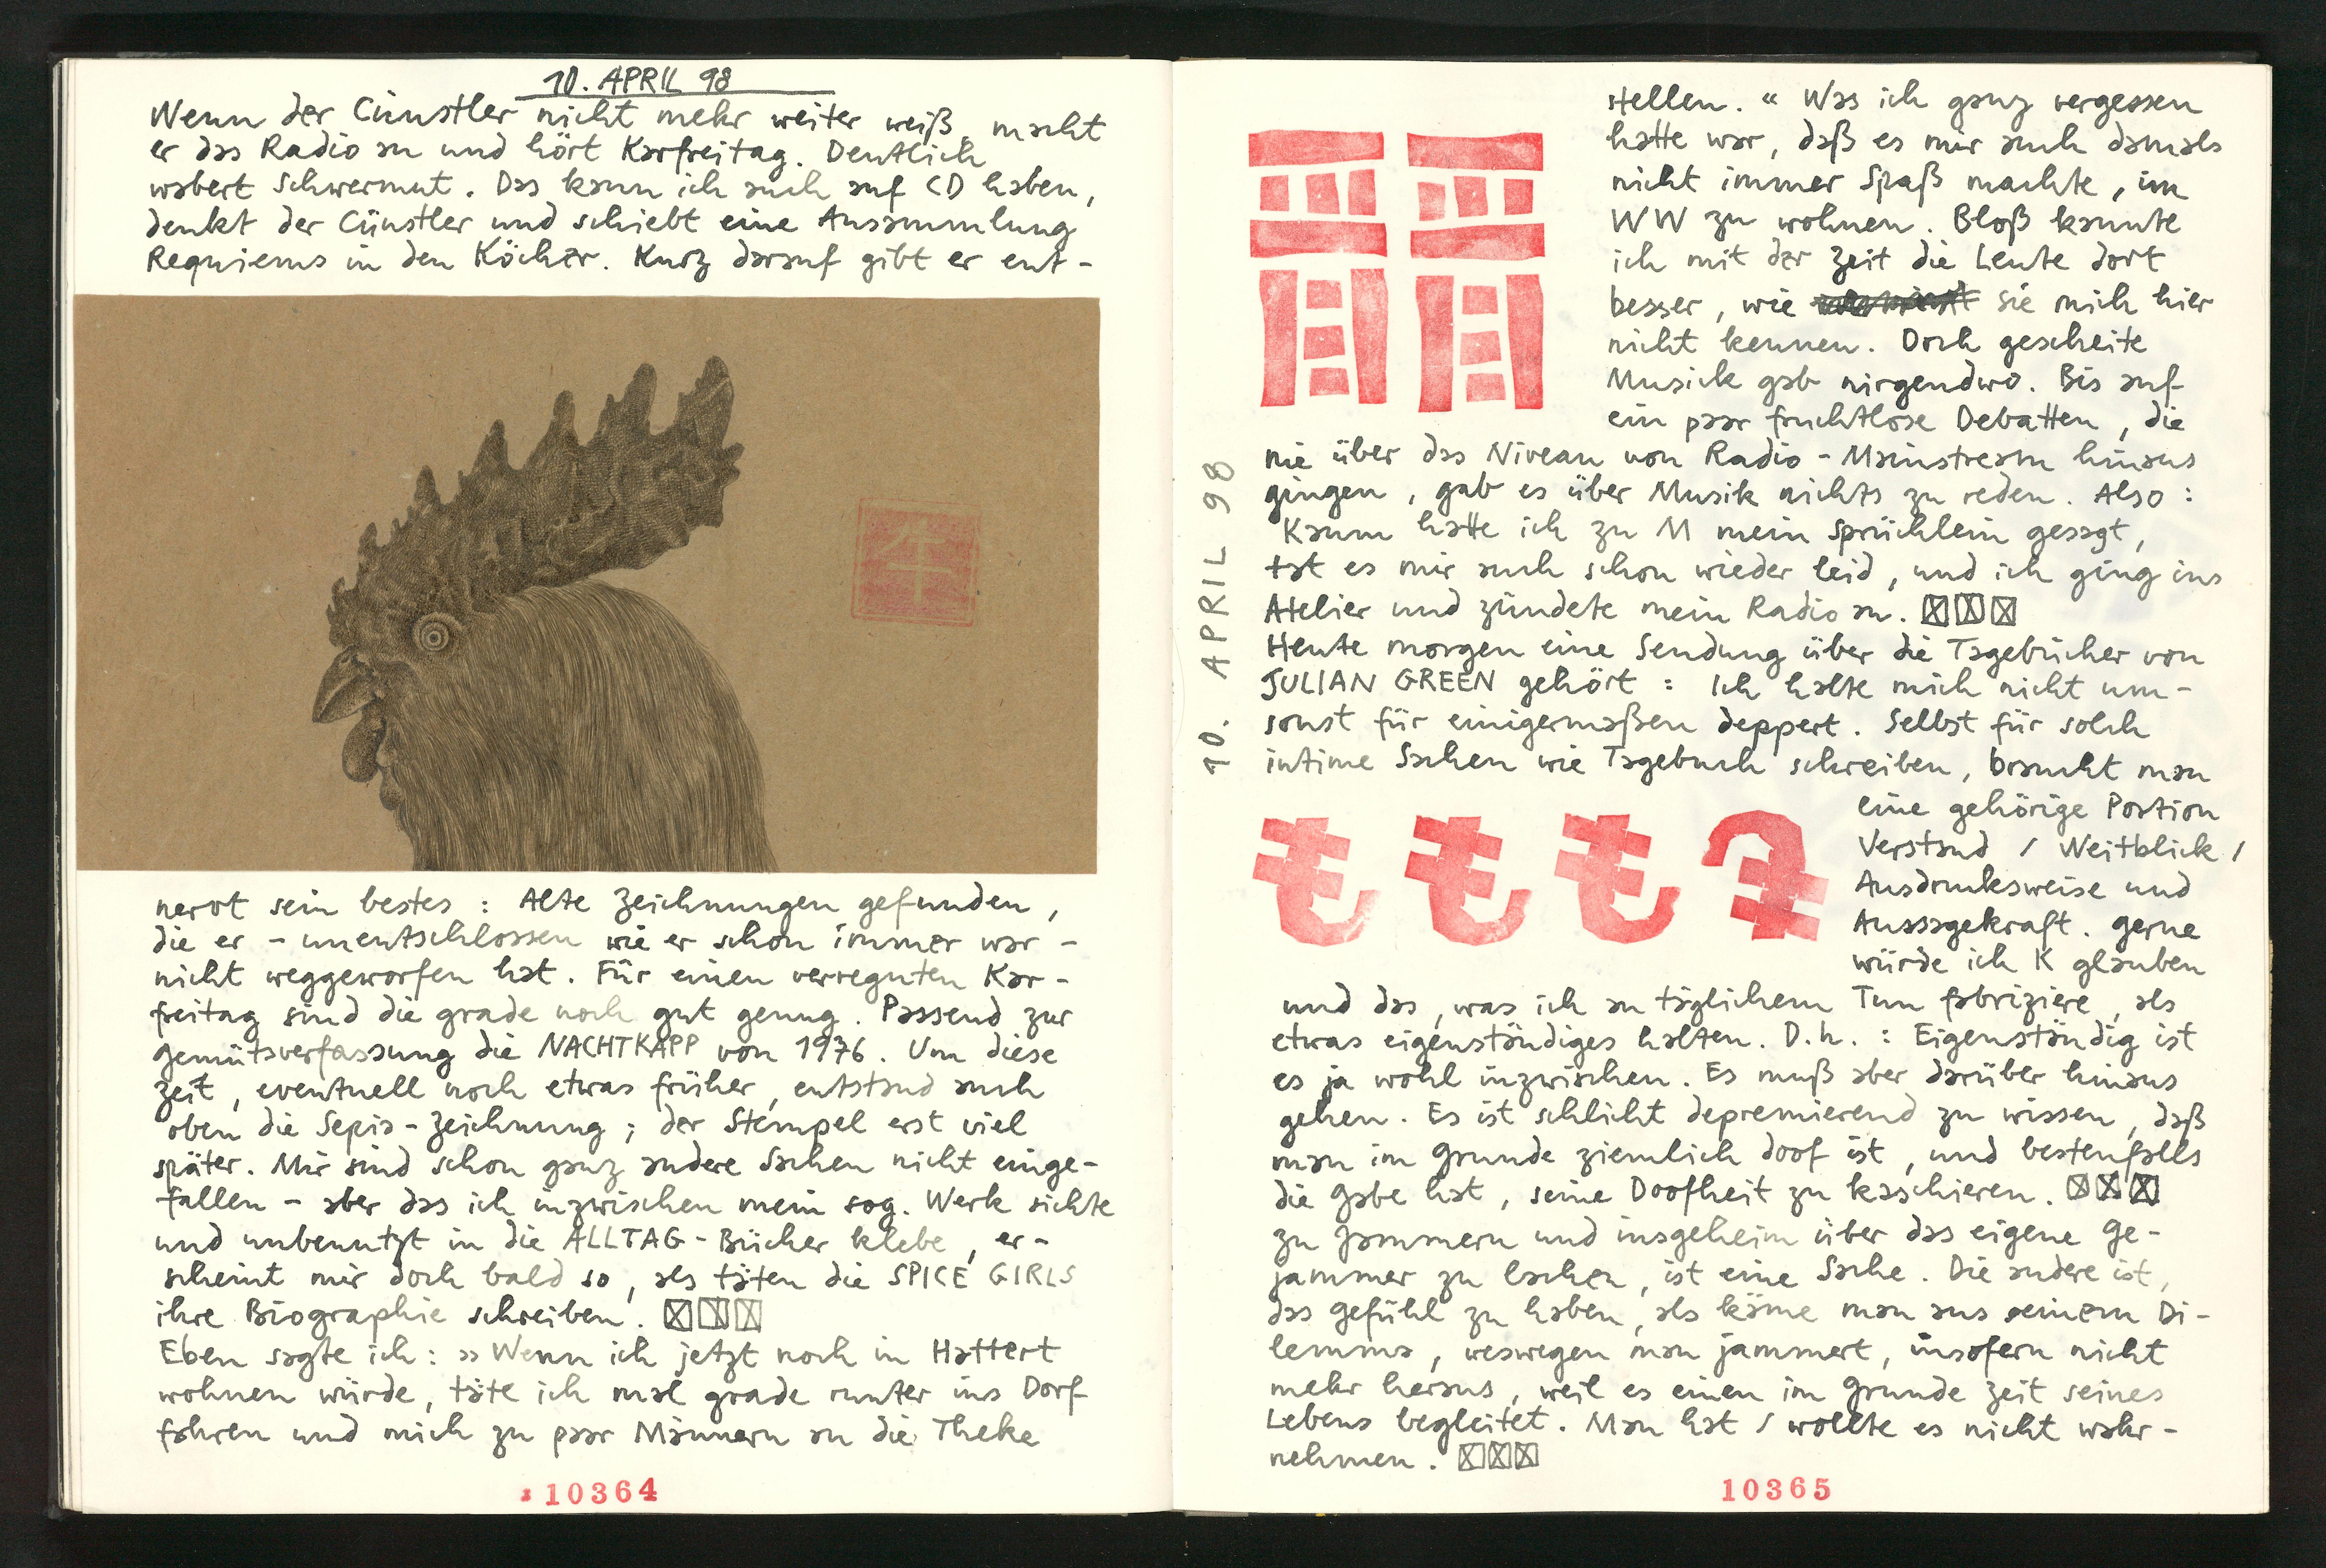 10. APRIL 98
Wenn der Cünstler nicht mehr weiter weiß, macht
er das Radio an und hört Karfreitag. Deutlich
wabert Schwermut. Das kann ich auch auf CD haben,
denkt der Cünstler und schiebt eine Ansammlung
Requiems in den Köcher. Kurz darauf gibt er ent-
牛
nervt sein bestes : Alte Zeichnungen gefunden,
die er - unentschlossen wie er schon immer war -
nicht weggeworfen hat. Für einen verregnten Kar-
freitag sind die grade noch gut genug. Passend zur
Gemütsverfassung die NACHTKAPP von 1976. Um diese
Zeit, eventuell noch etwas früher, entstand auch
oben die Sepia-Zeichnung; der Stempel erst viel
später. Mir sind schon ganz andere Sachen nicht einge-
fallen - aber das ich inzwischen mein sog. Werk sichte
und unbenutzt in die ALLTAG-Bücher klebe, er-
scheint mir doch bald so, als täten die SPICE GIRLS
ihre Biographie schreiben. ☒☒☒
Eben sagte ich: »Wenn ich jetzt noch in Hattert
wohnen würde, täte ich mal grade runter ins Dorf
fahren und mich zu paar Männern an die Theke
10364
stellen.« Was ich ganz vergessen
hatte war, daß es mir auch damals
nicht immer Spaß machte, im
WW zu wohnen. Bloß kannte
ich mit der Zeit die Leute dort
besser, wie sie mich hier
nicht kennen. Doch gescheite
Musick gab nirgendwo. Bis auf
ein paar fruchtlose Debatten, die
nie über das Niveau von Radio-Mainstream hinaus
gingen, gab es über Musik nichts zu reden. Also:
Kaum hatte ich zu M mein Sprüchlein gesagt,
tat es mir auch schon wieder leid, und ich ging ins
Atelier und zündete mein Radio an. ☒☒☒
Heute morgen eine Sendung über die Tagebücher von
JULIAN GREEN gehört : Ich halte mich nicht um-
sonst für einigermaßen deppert. Selbst für solch
intime Sachen wie Tagebuch schreiben, braucht man
10. APRIL 98
もももも
eine gehörige Portion
Verstand / Weitblick /
Ausdruksweise und
Aussagekraft. Gerne
würde ich K glauben
und das, was ich an täglichem Tun fabriziere, als
etwas eigenständiges halten. D.h. : Eigenständig ist
es ja wohl inzwischen. Es muß aber darüber hinaus
gehen. Es ist schlicht depremierend zu wissen, daß
man im Grunde ziemlich doof ist, und bestenfalls
die Gabe hat, seine Doofheit zu kaschieren. ☒☒☒
Zu Jammern und insgeheim über das eigene Ge-
jammer zu lachen, ist eine Sache. Die andere ist,
das Gefühl zu haben, als käme man aus seinem Di-
lemma, weswegen man jammert, insofern nicht
mehr heraus, weil es einen im Grunde Zeit seines
Lebens begleitet. Man hat / wollte es nicht wahr-
nehmen. ☒☒☒
10365